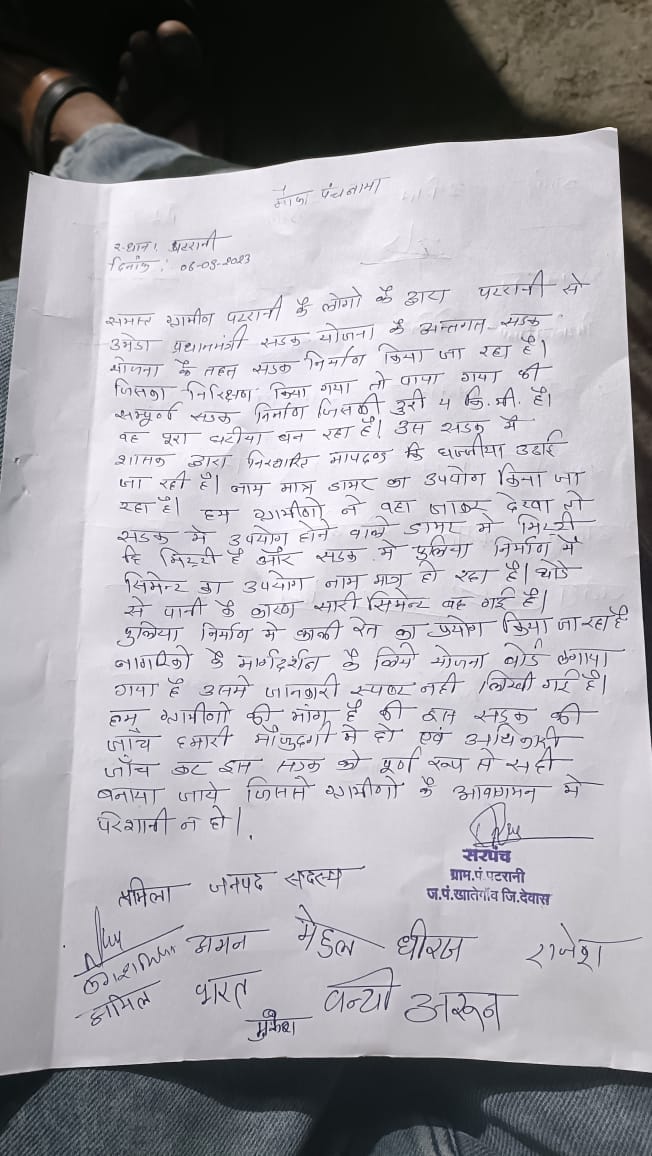 मौका पंचनामा
स्थान: पटरानी
दिनांक: 06-09-2023
समस्त ग्रामीण पटरानी के लोगो के द्वारा पटरानी से
उमेडा प्रधानमंत्री सडक योजना के अन्तगत सडक
योजना के तहत सडक निर्माण किया जा रहा है।
जिसका निरिक्षण किया गया तो पाया गया की
सम्पूर्ण सडक निर्माण जिसकी दुरी 4 कि.मी. है।
वह पूरा घटीया बन रहा है। उस सडक में
शासक द्वारा निरधारित मापदण्ड कि धज्जीया उडाई
जा रही है। नाम मात्र डामर का उपयोग किया जा
रहा है। हम ग्रामीणो ने वहा जाकर देखा तो
सडक मे उपयोग होने वाले डामर मे मिट्टी
हि मिट्टी है और सडक मे पूलिया निर्माण में
सिमेन्ट का उपयोग नाम मात्र हो रहा है। थोडे
से पानी के कारण सारी सिमेन्ट बह गई है।
पुलिया निर्माण मे काली रेत का प्रयोग किया जा रहा है
नागरिको के मार्गदर्शन के लिये योजना बोर्ड लगाया
गया है उसमे जानकारी स्पष्ट नही लिखी गई है।
हम ग्रामीणो की मांग है की इस सडक की
जाँच हमारी मौजुदगी मे हो एवं अधिकारी
जाँच कर इस सडक को पूर्ण रूप से सही
बनाया जाये जिससे ग्रामीणो के आवागमन मे
परेशानी न हो।
सरपंच
ग्राम.पं.पटरानी
ज.पं.खातेगाँव जि.देवास
जनपद सदस्य
मेहुल धीरज राजेश
भारत अरून
मुकेश